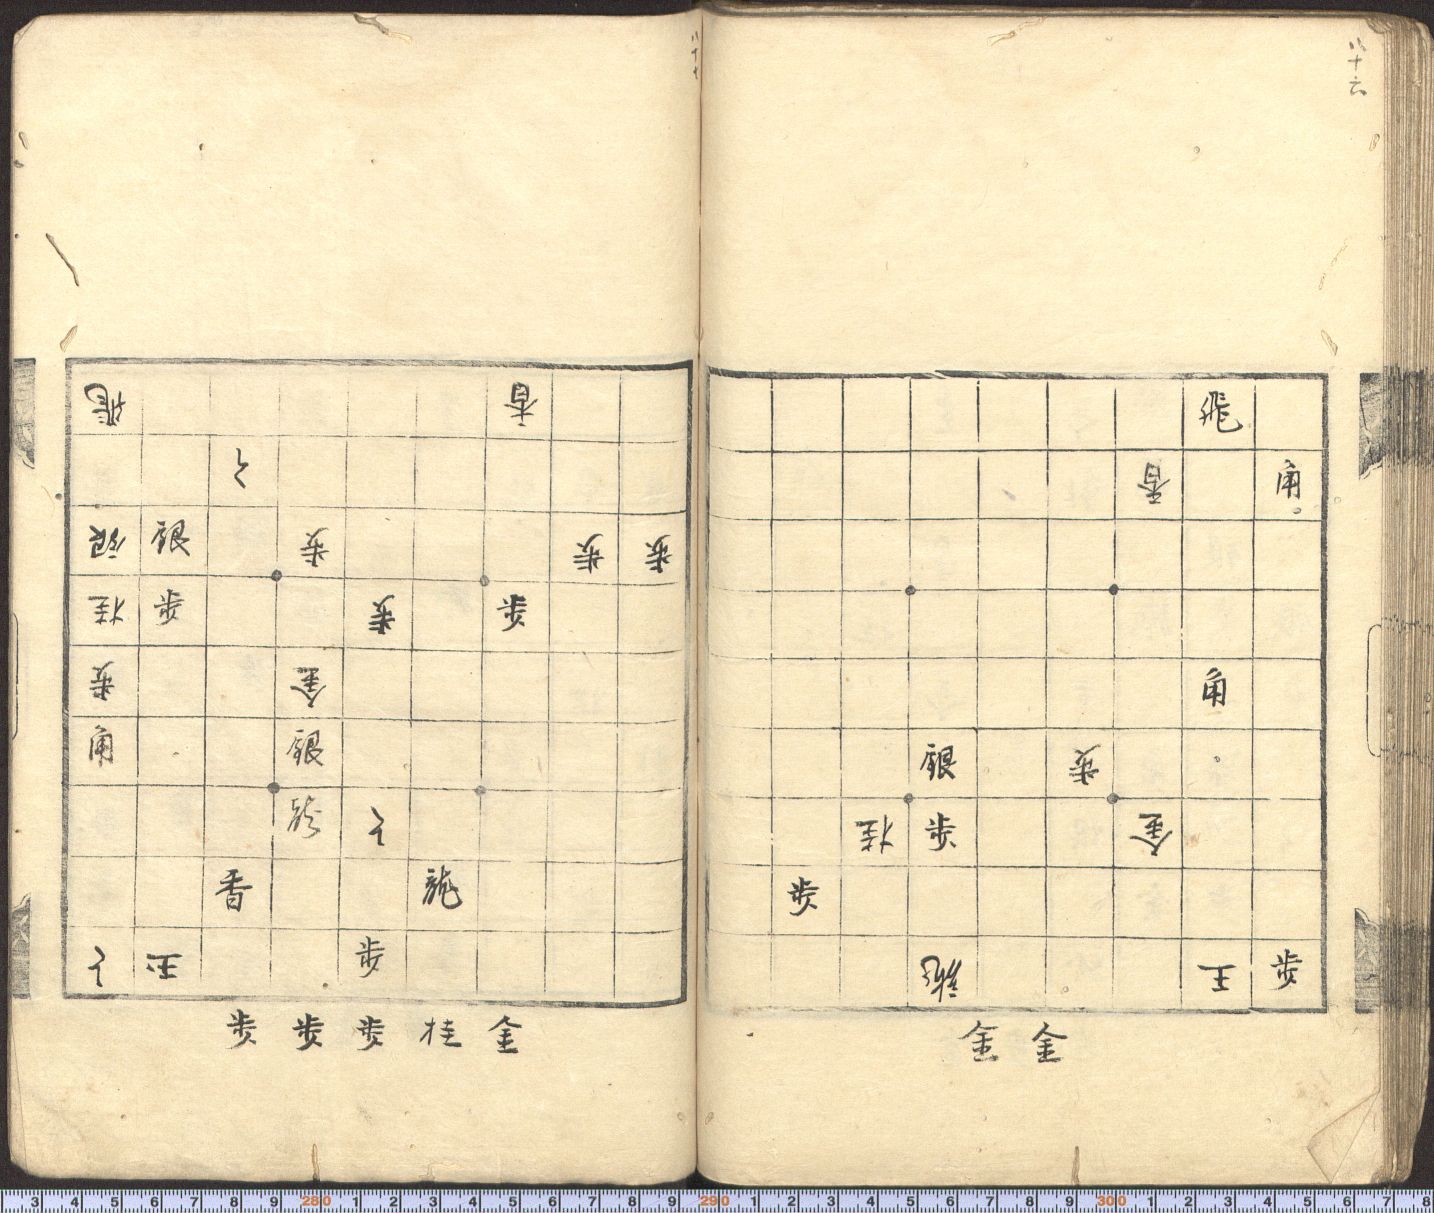 八十六
飛
香 角
角
銀 歩
桂 歩 金
歩
龍 王 歩
金 金
八十七
飛 香
銀 銀 歩 歩 歩
桂 歩 歩 歩
歩 金
角 銀
香 龍
玉 歩
歩 歩 歩 桂 金
3 4 5 6 7 8 9 280 1 2 3 4 5 6 7 8 9 290 1 2 3 4 5 6 7 8 9 300 1 2 3 4 5 6 7 8